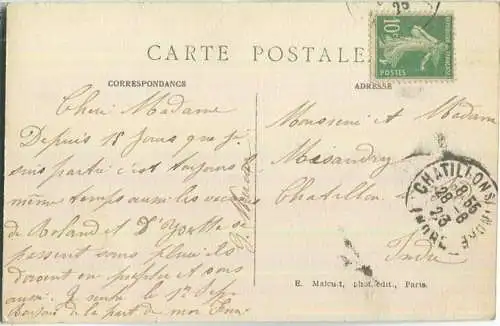 25
10c
POSTES
CARTE POSTALE
CORRESPONDANCE
ADRESSE
Chère Madame
Depuis 15 Jours que je
suis partie c'est toujours le
même temps aussi les vacances
de Roland et D'Yvette se
passent sous pluie ils
doivent en profiter et vous
aussi. Je rentre le 1er Sep
Bonjour de la part de mon
Monsieur et Madame
Mesandry
Chatillon s
Indre
CHATILLON-S-INDRE
8-55
28-8
23
INDRE
E. Malcuit, phot. édit., Paris.